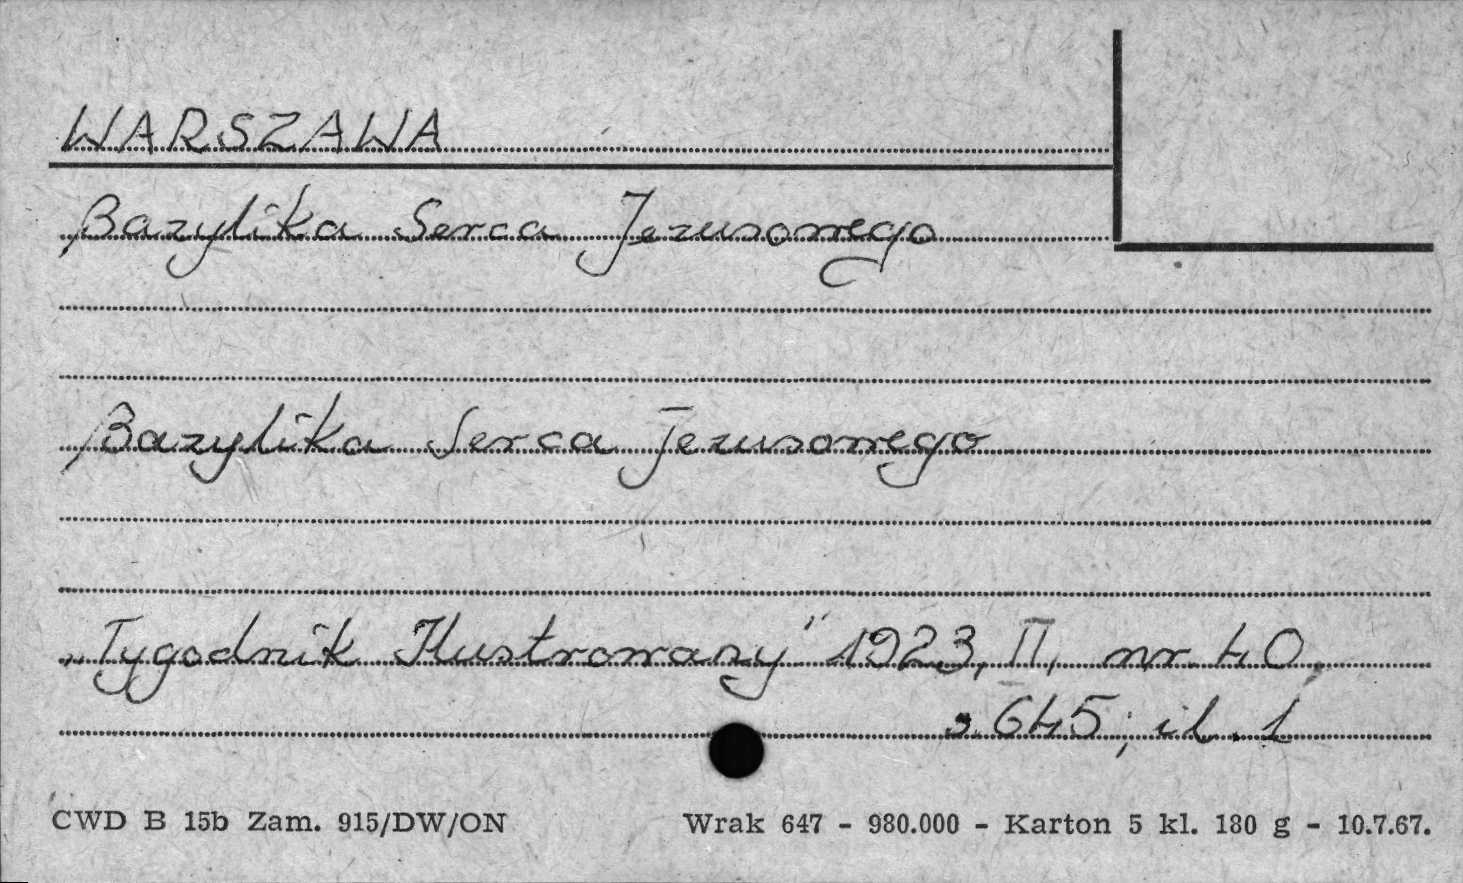 WARSZAWA
Bazylika Serca Jezusowego
Bazylika Serca Jezusowego
„Tygodnik Ilustrowany" 1923, II, nr 40,
s. 645; il. 1
CWD B 15b Zam. 915/DW/ON Wrak 647 - 980.000 - Karton 5 kl. 180 g - 10.7.67.